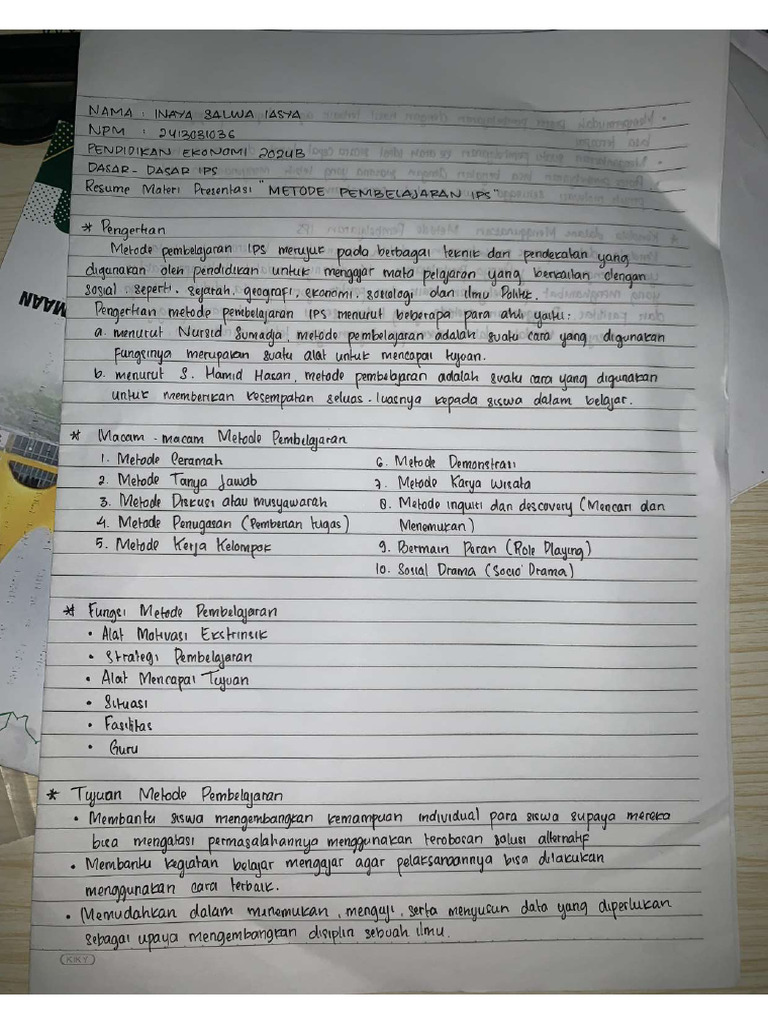 NAMA : INAYA SALWA IASYA
NPM : 2413031036
PENDIDIKAN EKONOMI 2024B
DASAR-DASAR IPS
Resume Materi Presentasi "METODE PEMBELAJARAN IPS"
* Pengertian
Metode pembelajaran IPS merujuk pada berbagai teknik dan pendekatan yang
digunakan oleh pendidikan untuk mengajar mata pelajaran yang berkaitan dengan
sosial seperti. sejarah, geografi, ekonomi, sosiologi dan Ilmu Politik.
Pengertian metode pembelajaran IPS menurut beberapa para ahli yaitu:
a. menurut Nursid Sumadja, metode pembelajaran adalah suatu cara yang digunakan
fungsinya merupakan suatu alat untuk mencapai tujuan.
b. menurut S. Hamid Hasan, metode pembelajaran adalah suatu cara yang digunakan
untuk memberikan kesempatan seluas-luasnya kepada siswa dalam belajar.
* Macam-macam Metode Pembelajaran
1. Metode Ceramah
2. Metode Tanya Jawab
3. Metode Diskusi atau musyawarah
4. Metode Penugasan (Pemberian tugas)
5. Metode Kerja Kelompok
6. Metode Demonstrasi
7. Metode Karya Wisata
8. Metode inquiti dan descovery (Mencari dan
Menemukan)
9. Bermain Peran (Role Playing)
10. Sosial Drama (Socio Drama)
* Fungsi Metode Pembelajaran
• Alat Motivasi Ekstrinsik
• Strategi Pembelajaran
• Alat Mencapai Tujuan
• Situasi
• Fasilitas
• Guru
* Tujuan Metode Pembelajaran
• Membantu siswa mengembangkan kemampuan individual para siswa supaya mereka
bisa mengatasi permasalahannya menggunakan terobosan solusi alternatif
• Membantu kegiatan belajar mengajar agar pelaksanaannya bisa dilakukan
menggunakan cara terbaik.
• Memudahkan dalam menemukan, menguji, serta menyusun data yang diperlukan
sebagai upaya mengembangkan disiplin sebuah ilmu.
KIKY
MAAN